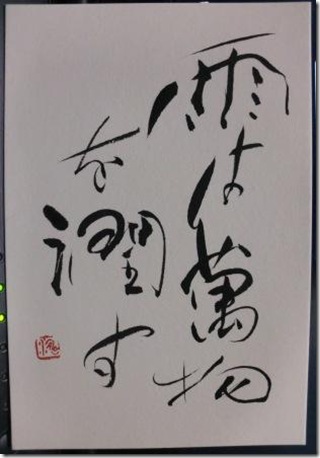 雨は萬物
を潤す